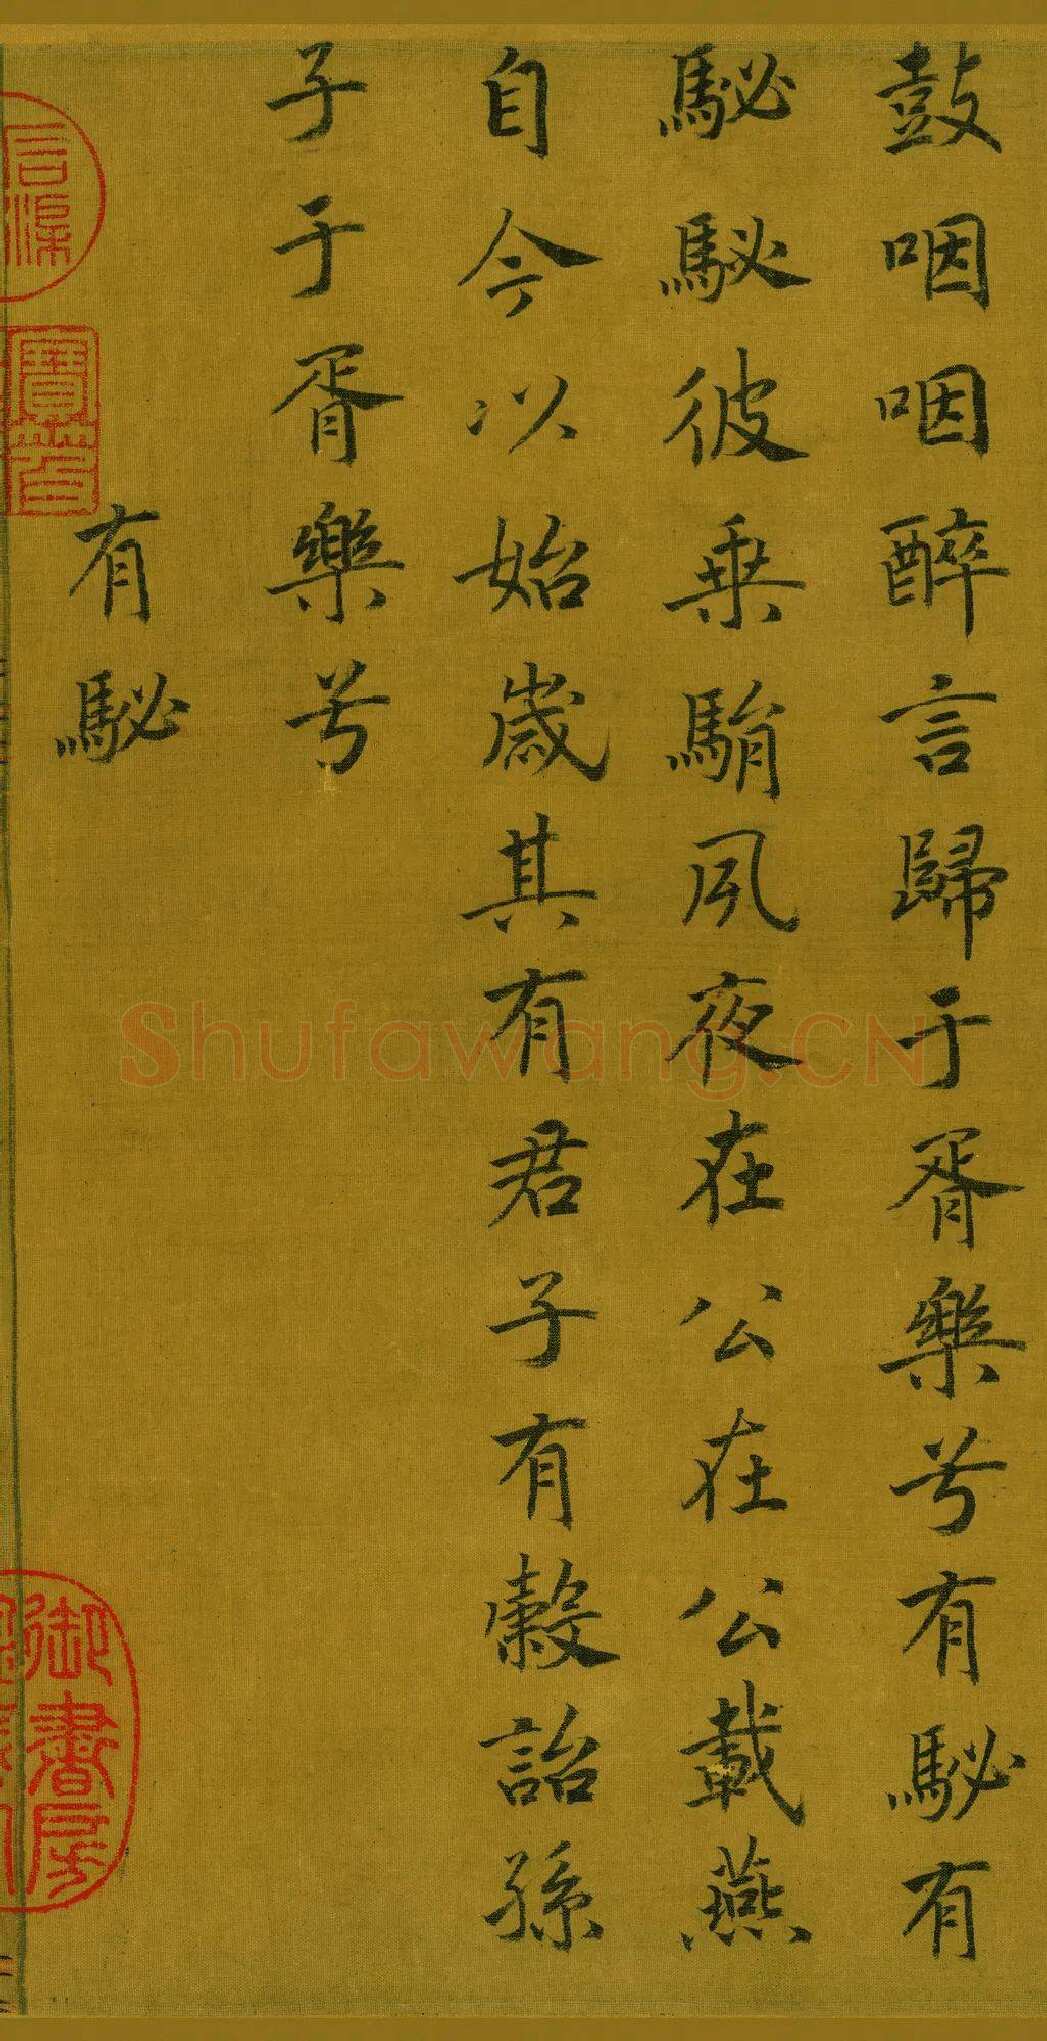 鼓咽咽醉言歸于胥樂兮有駜有
駜駜彼乗駽夙夜在公在公載燕
自今以始歲其有君子有穀詒孫
子于胥樂兮
有駜
石渠
寶笈
御書房
Shufawang.CN